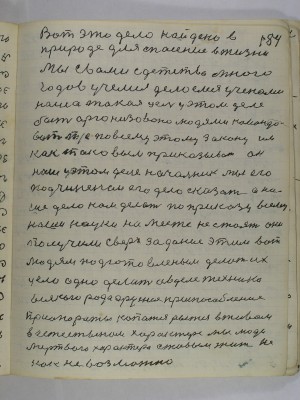 184
Вот это дело найдено в
природе для спасение в жизни
Мы с вами с детства много
годов учимся делаемся учеными
наша такая цель у этом деле
быть организовано людями командо-
вать т/е по всему этому закону им
как таковым приказывал он
наш у этом деле начальник мы его
подчиненыи его дело сказать а на-
ше дело нам делать по приказу всему
наши науки на месте не стоят они
получили сверх задание этим вот
людям подготовленым делать их
цело одно делать а будет техника
всякого рода оружия приспособление
Приопораты копатся рытся в живом
в естественом характере мы люди
мертвого характера с таковым жить не
как не возможно